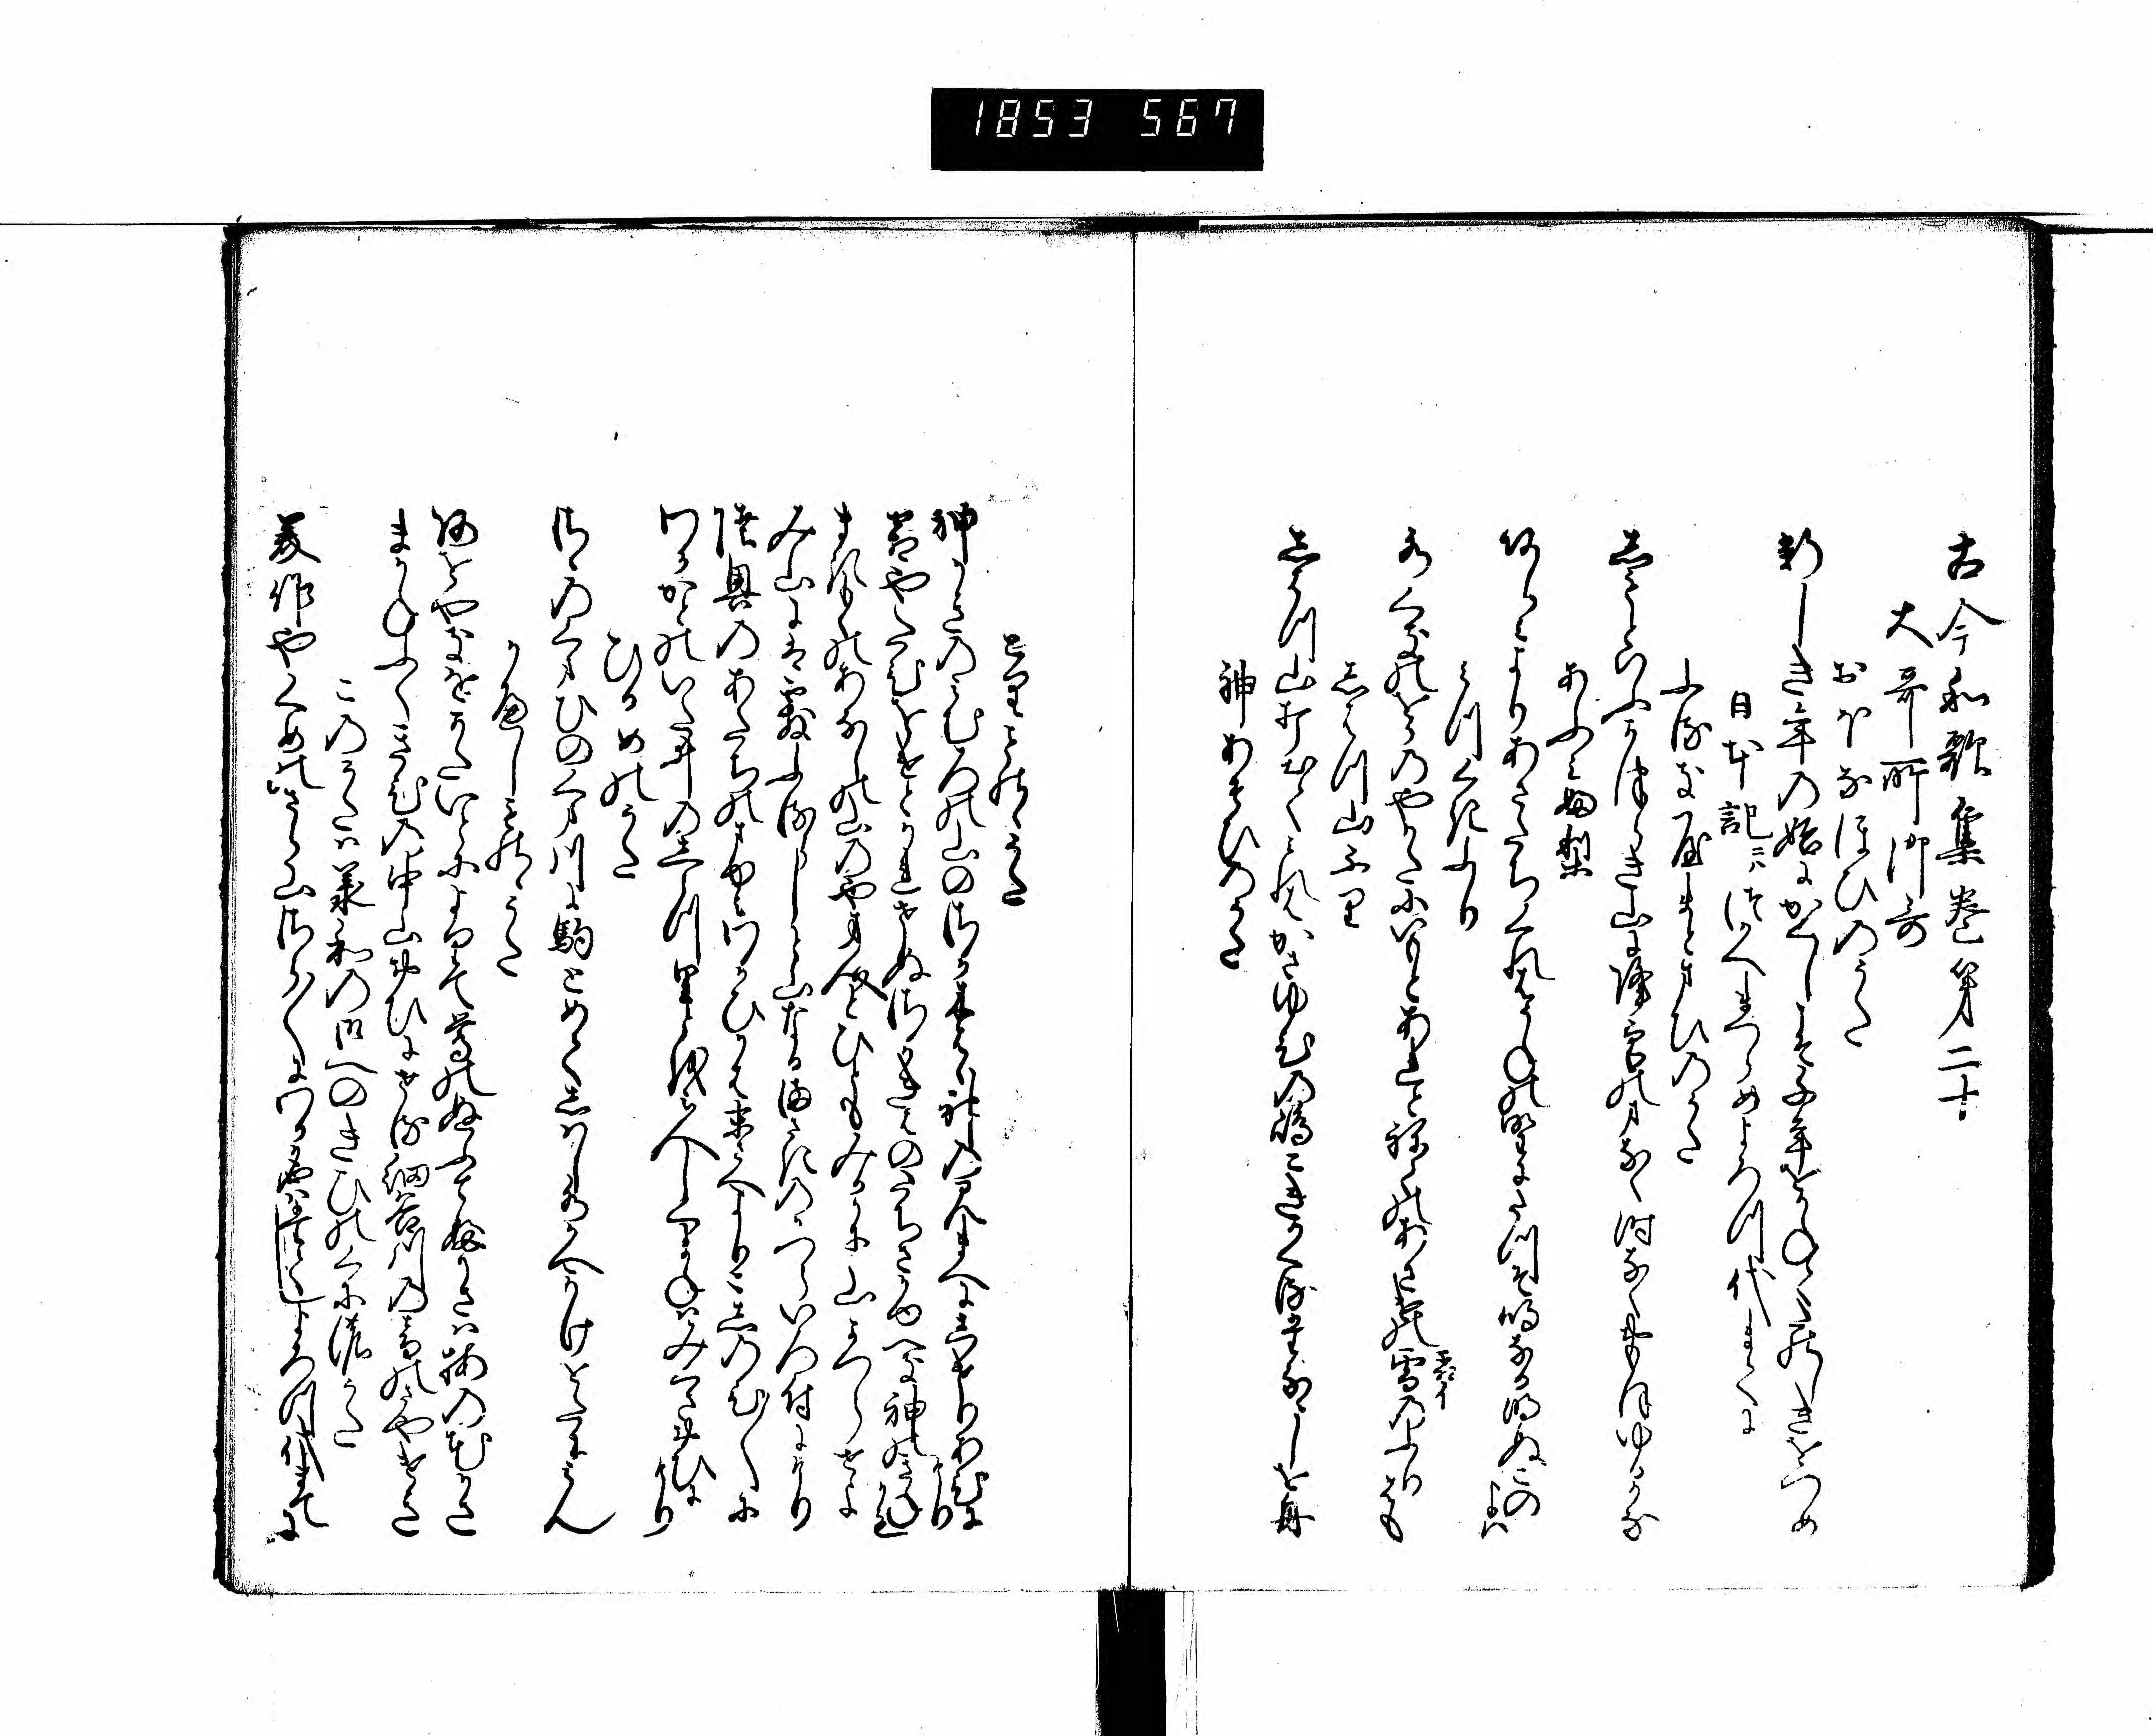 1853 567
古今和歌集巻第二十
大哥所御哥
おほなほひのうた
新しき年の始にかくしこそ千年をかねてたのしきをつめ
日本記ニハつかへまつらめよろつ代まてに
ふるきやまとまひのうた
しもとゆふかつらき山に降雪のまなく時なくおもほゆるかな
あふみふり
あふみよりあさたちくれはうねの野にたつそ鳴なる明ぬこのよは
みつくきふり
水くきのをかのやかたにいもとあれとねてのあさけの霜のふりはも
しはつ山ふり
しはつ山打出てみれはかさゆひの嶋こきかくる棚なしを舟
神あそひのうた
とりものゝうた
神かきのみむろの山のさかきはは神のみまへにしけりあひにけり
霜やたひをけとかれせぬさかきはのたちさかゆへき神のきねかも
まきもくのあなしの山のやま人と人もみるかに山かつらせよ
み山にはあられふるらしと山なるまさきのかつらいろ付にけり
陸奥のあたちのまゆみわかひかは末さへよりこしのひ〳〵に
わかかとのいたゐのし水里とをみ人しくまねはみくさおひにけり
ひるめのうた
さゝのくまひのくま川に駒とめてしはし水かへかけをたにみん
かへしものゝうた
あをやきをかたいとによりて鶯のぬふてふ笠は梅の花かさ
まかねふくきひの中山おひにせる細谷川の音のさやけさ
このうたは承和の御へのきひのくにの哥
美作やくめのさら山さら〳〵にわか名はたてしよろつ代まてに